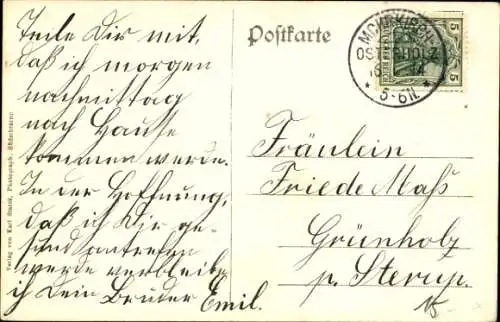 Teile Dir mit,
daß ich morgen
nachmittag
nach Hause
kommen werde.
In der Hoffnung,
daß ich Dir ge-
sund antreffen
werde verbleibe
ich Dein Bruder Emil.
Postkarte
MOHRKIRCH
OSTERHOLZ
5-6N.
5
5
Fräulein
Friede Maß
Grünholz
p. Sterup.
Verlag von Karl Stanik, Photograph, Süderbrarup